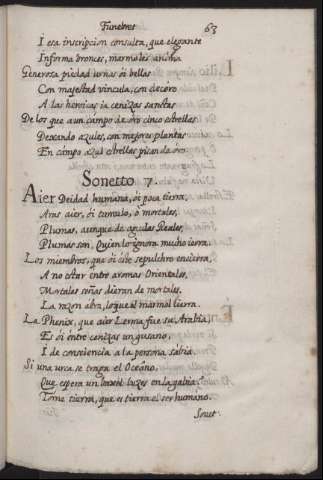 Funebres 63
I esa inscripcion consulta, que elegante
Informa bronces, marmoles anima
Generosa piedad urnas oi bellas
Con majestad vincula, con decoro
A las heroicas ia cenizas sanctas
De los que aun campo de oro cinco estrellas
Dexando azules, con mejores plantas
En campo azul estrellas pisan de oro
Sonetto 7.
Aier Deidad humana, oi poca tierra,
Aras aier, oi tumulo, o mortales,
Plumas, aunque de aguilas Reales,
Plumas son, Quien lo ignora mucho ierra.
Los miembros, que oi este sepulchro encierra,
A no estar entre aromas Orientales,
Mortales señas dieran de mortales,
La razon abra, lo que el marmol cierra.
La Phenix, que aier Lerma fue su Arabia,
Es oi entre cenizas un gusano,
I de consciencia a la persona sabia.
Si una urca se traga el Oceano,
Que espera un baxel luzes en la gabia?
Tome tierra, que es tierra el ser humano.
Sonet.